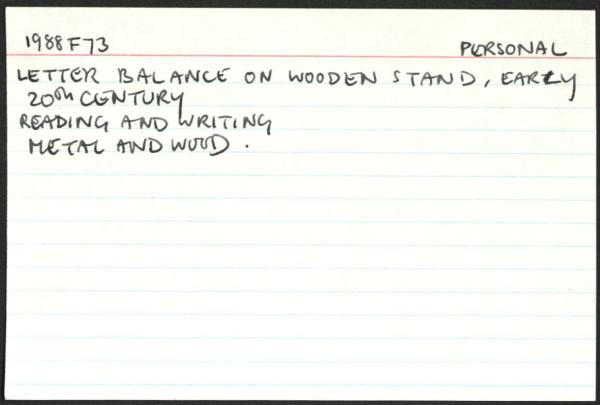 1988F73 PERSONAL
LETTER BALANCE ON WOODEN STAND, EARLY
20th CENTURY
READING AND WRITING
METAL AND WOOD.